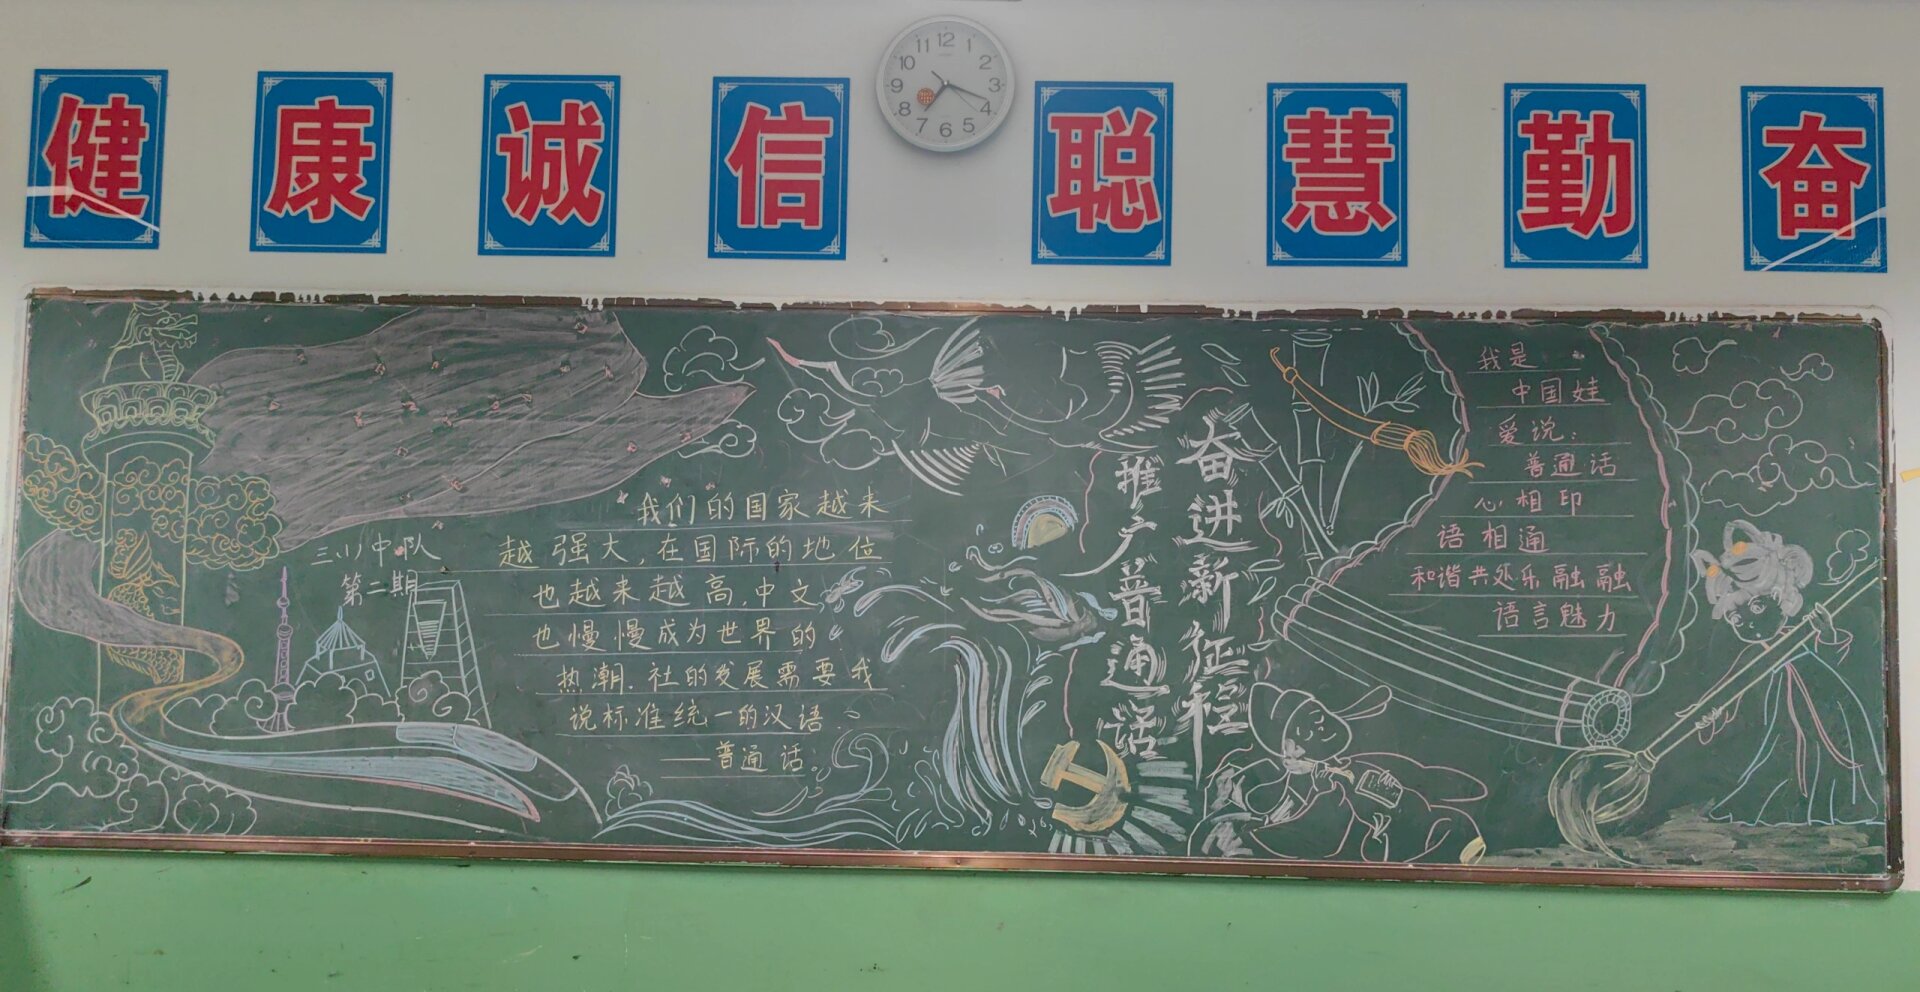 健康诚信聪慧勤奋
11 12 1
10 2
9 3
8 4
7 6 5
三(1)中队
第二期
我们的国家越来
越强大,在国际的地位
也越来越高,中文
也慢慢成为世界的
热潮.社的发展需要我
说标准统一的汉语.
——普通话.
推广普通话
奋进新征程
我是
中国娃
爱说:
普通话
心相印
语相通
和谐共处乐融融
语言魅力